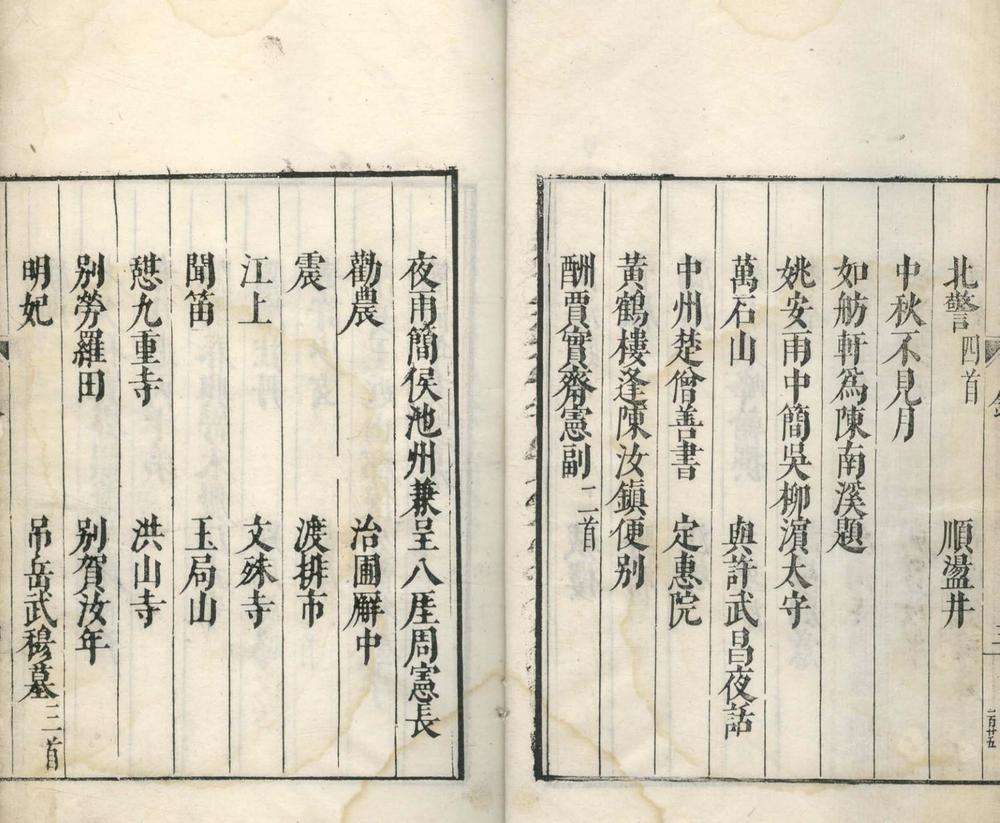 北警四首 順盪井
中秋不見月
如舫軒爲陳南溪題
姚安雨中簡吳柳濵太守
萬石山 與許武昌夜話
中州楚僧善書 定惠院
黃鶴樓逢陳汝鎮便别
酬賈實齋憲副二首
夜雨簡侯池州兼呈八厓周憲長
勸農 治圃廨中
震 渡排市
江上 文殊寺
聞笛 玉局山
憇九重寺 洪山寺
别勞羅田 别賀汝年
明妃 吊岳武穆墓二首